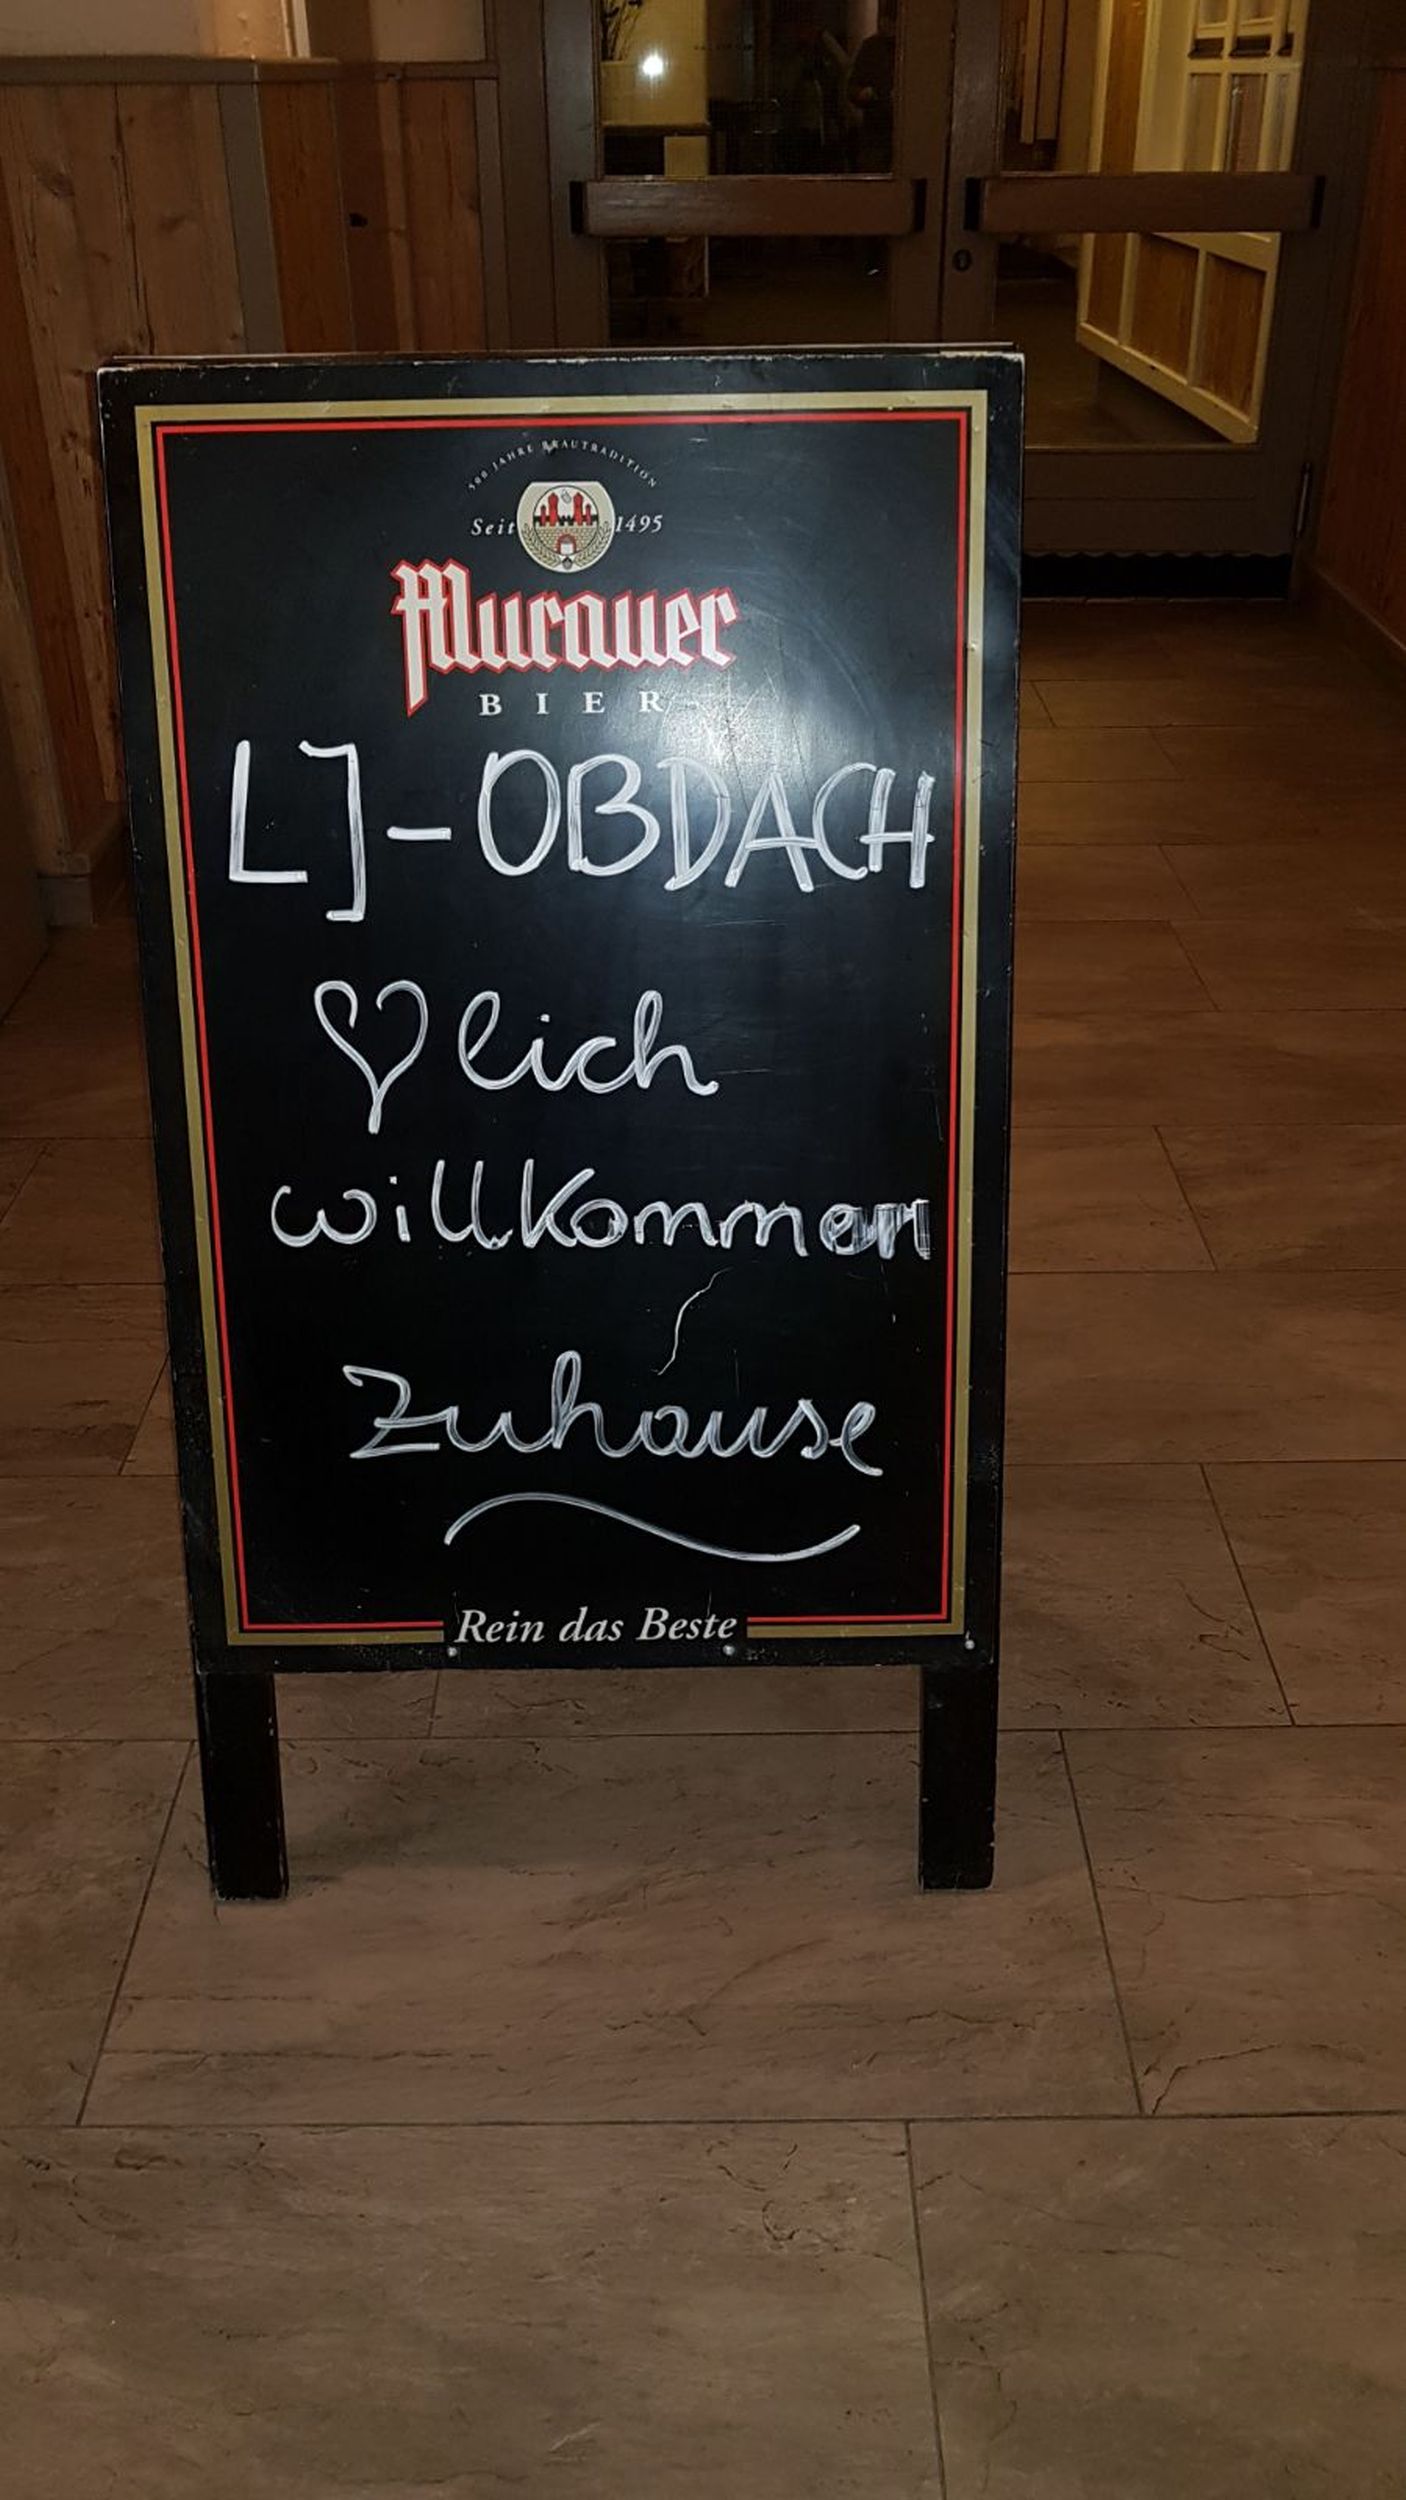 500 JAHRE BRAUTRADITION
Seit 1495
Murauer
BIER
LJ-OBDACH
♡lich
willkommen
Zuhause
Rein das Beste